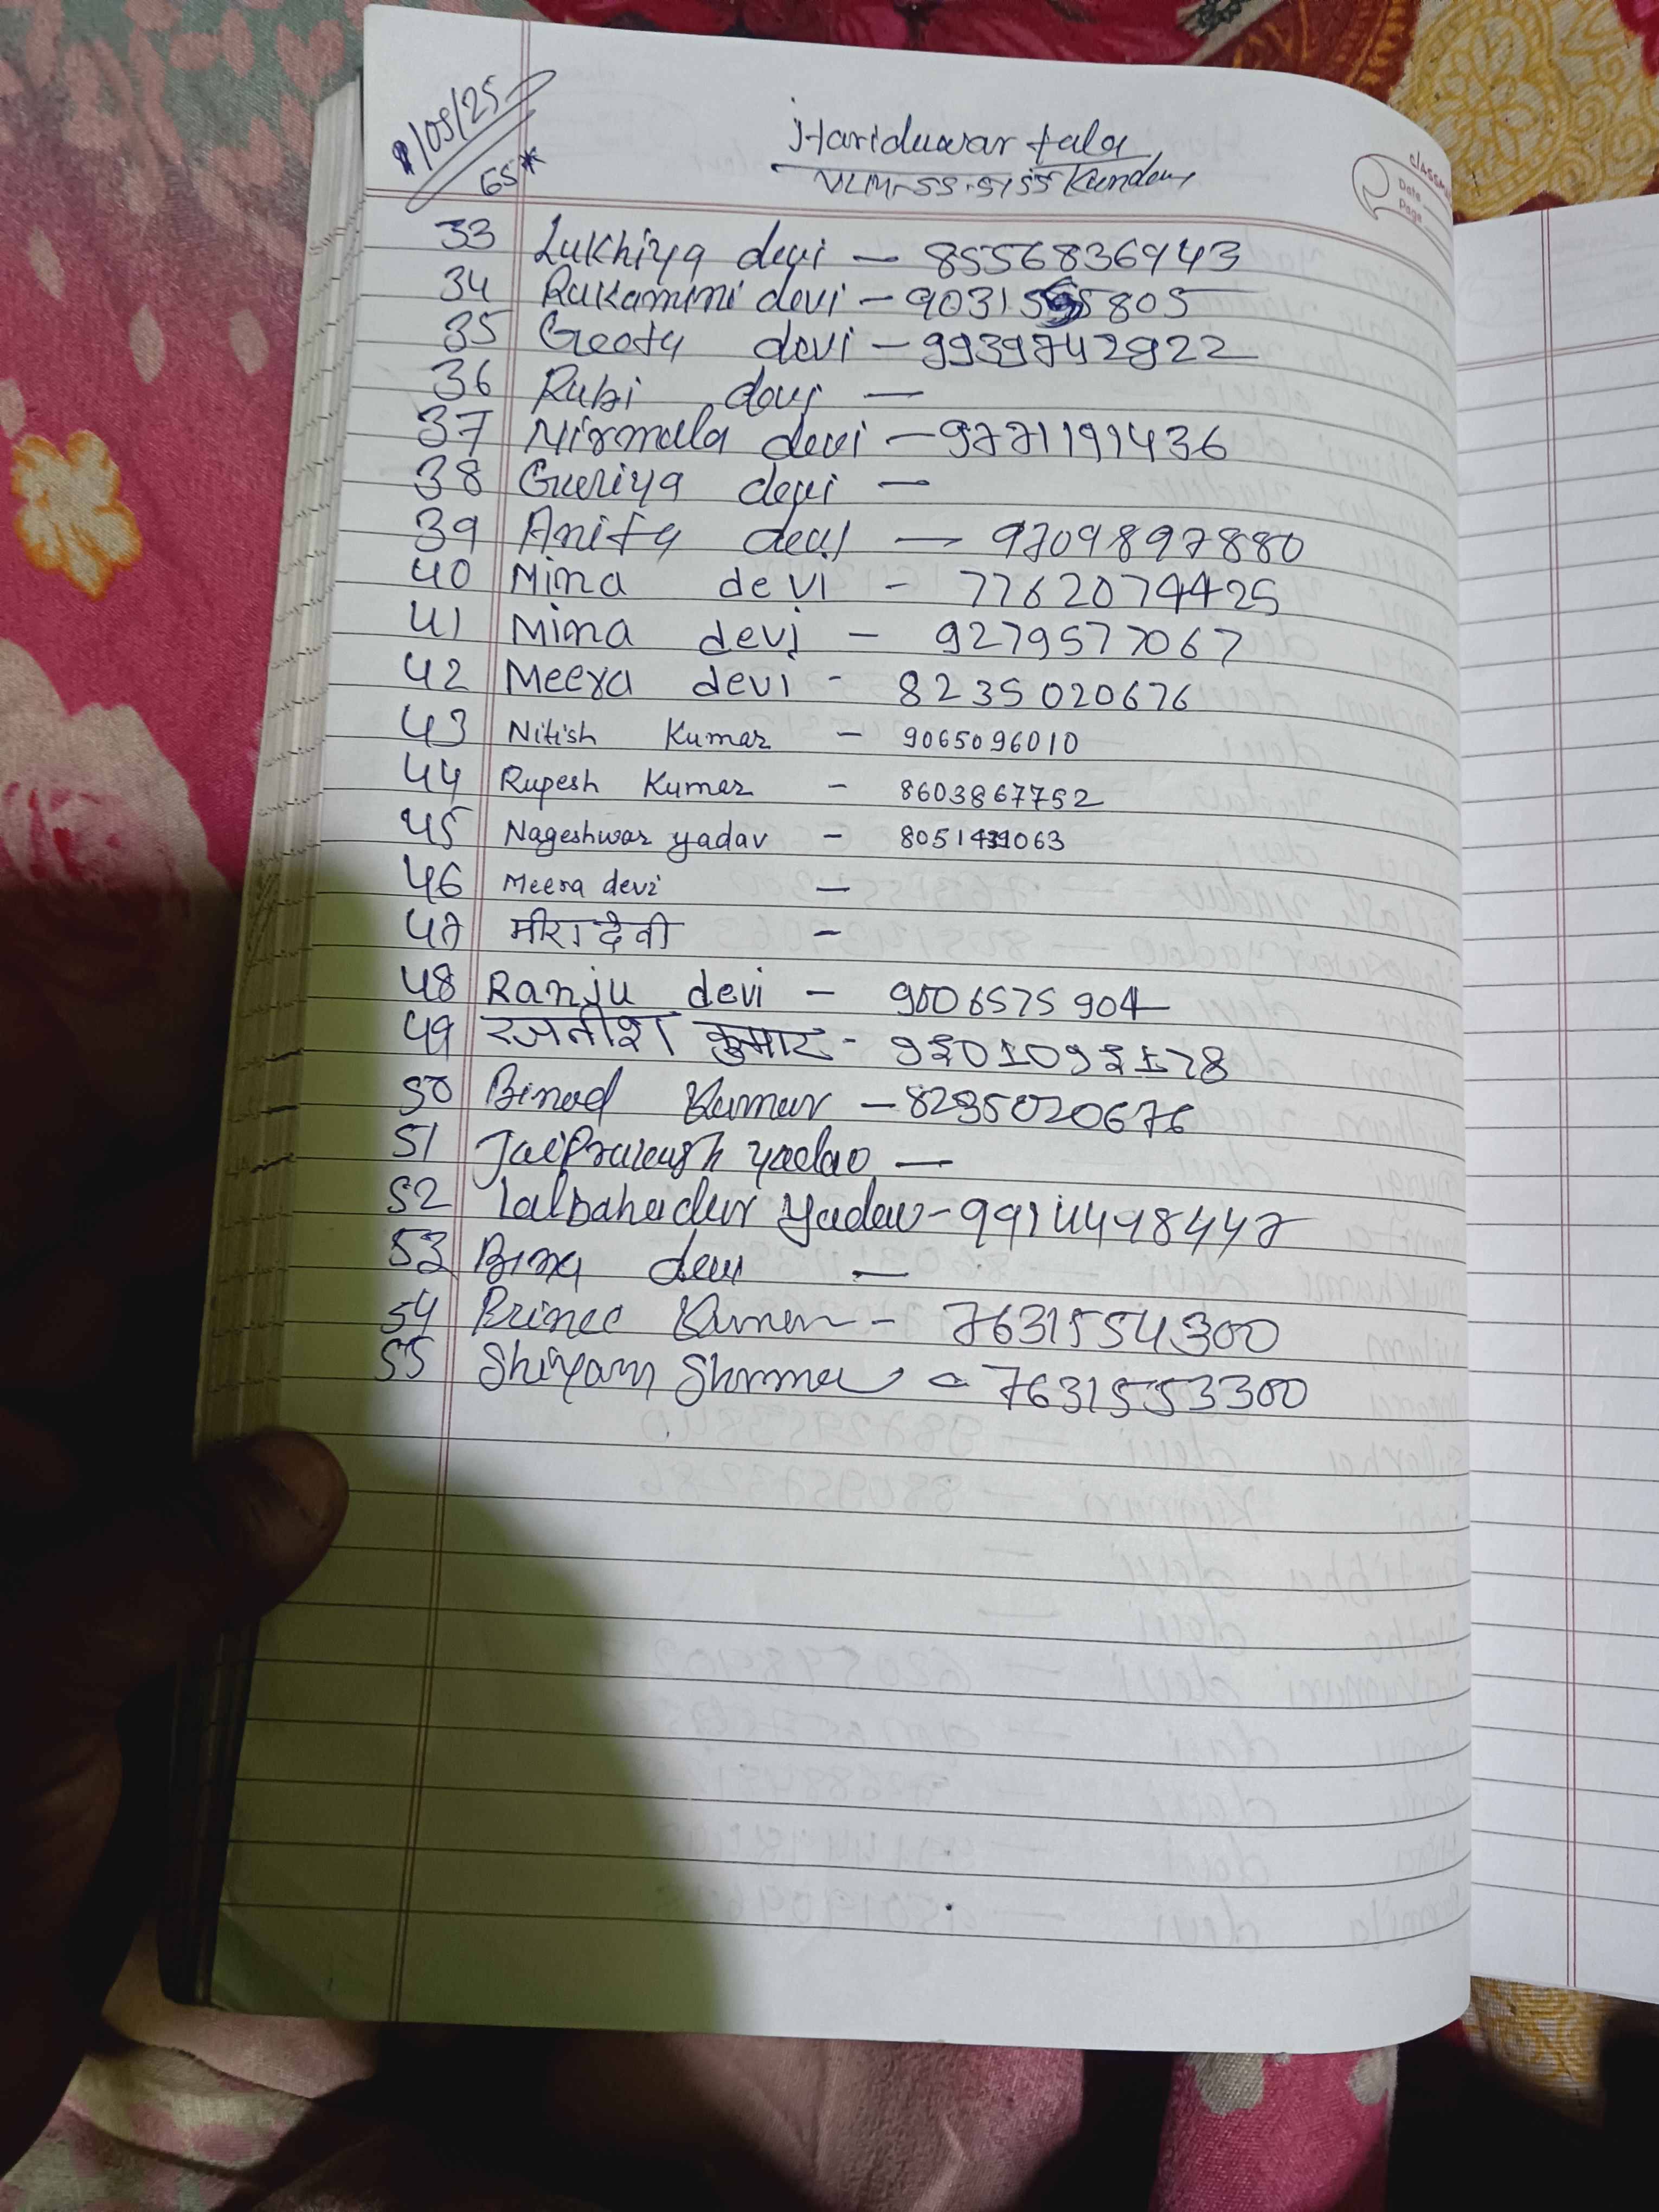 /05/25
Hariduwar tala
classm
Date
Page
33 Lukhiya devi - 8556836943
34 Rukamini devi - 9031 805
35 Geeta devi - 9939742922
36 Rubi devi -
37 Nirmala devi - 9771191436
38 Guriya devi -
39 Anita devi - 9709897880
40 Mina devi - 7762074425
41 Mina devi - 9279577067
42 Meera devi - 8235020676
43 Nitish Kumar - 9065096010
44 Rupesh Kumar - 8603867752
45 Nageshwar yadav -
46 Meera devi -
47 मीरा देवी -
48 Ranju devi - 9006575904
49 रजनीश कुमार -
50 Binod Kumar - 8235020676
51 Jaiprakash yadav -
52 Lalbahadur Yadav - 9914498447
53 Bina devi -
54 Prince Kumar - 7631554300
55 Shiyam Sharma - 7631553300